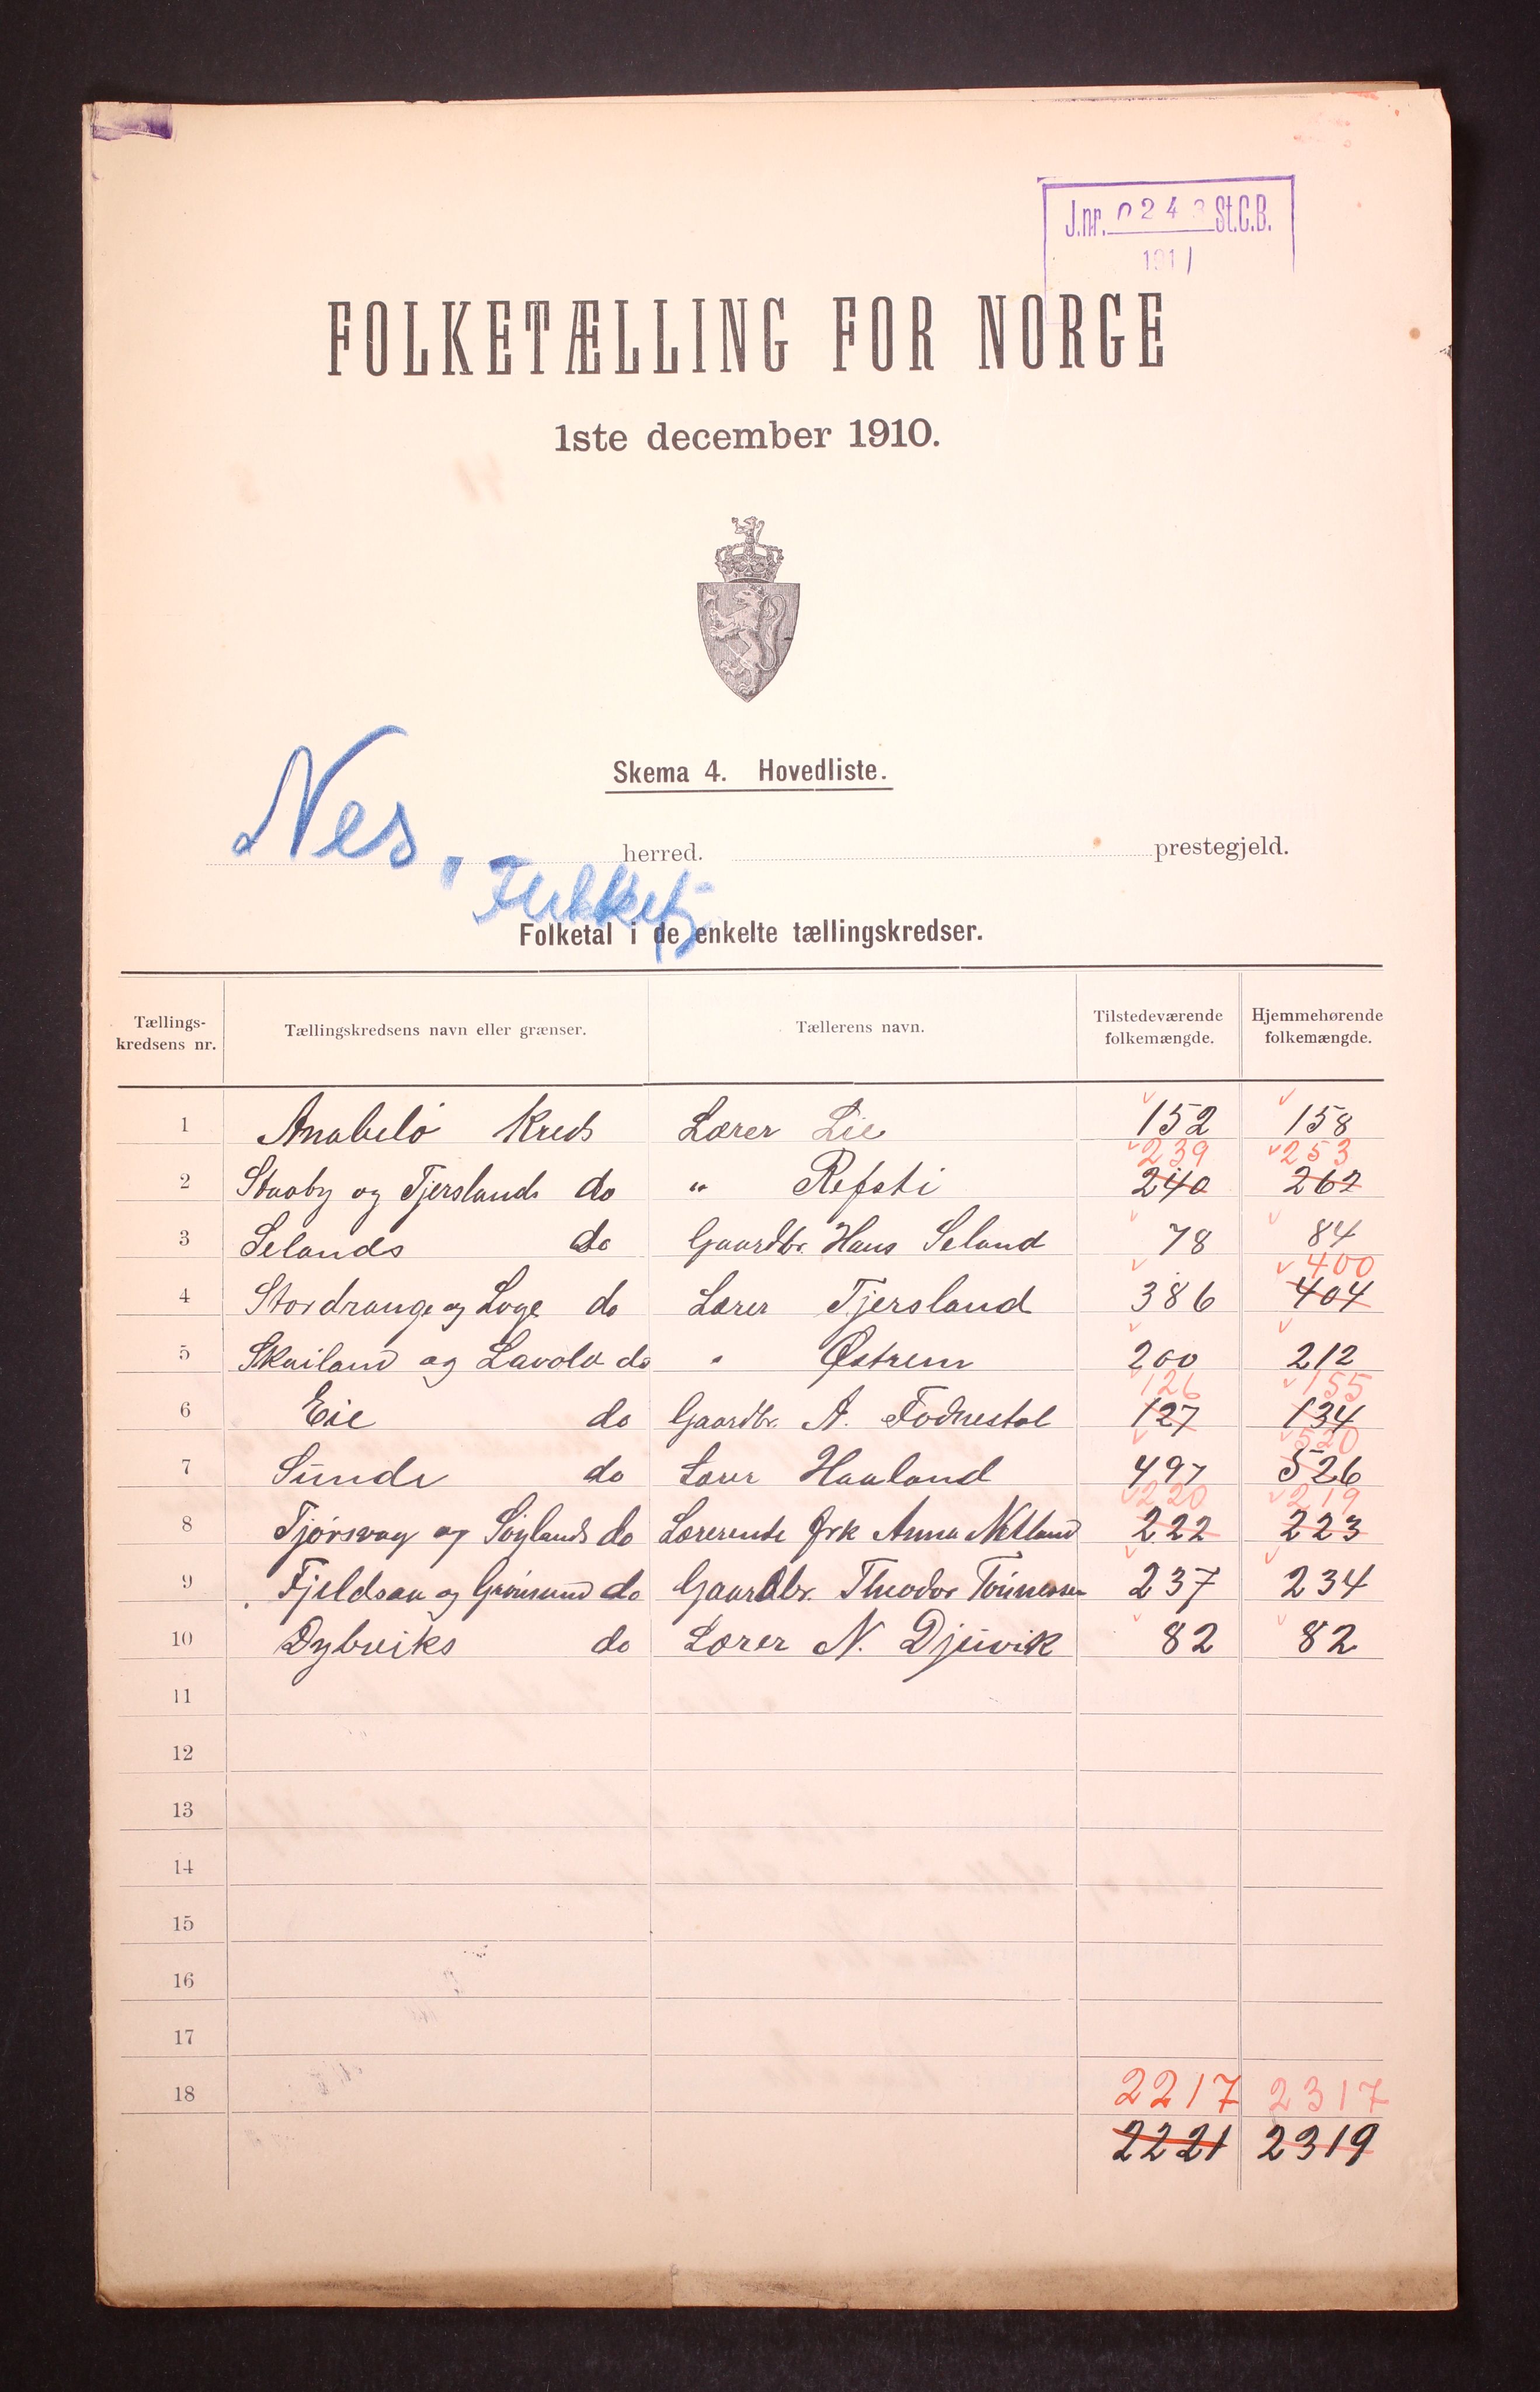 J.nr. 0243 St.C.B.
1911
FOLKETÆLLING FOR NORGE
1ste december 1910.
Skema 4. Hovedliste.
Nes, herred. prestegjeld.
Flekkefj
Folketal i de enkelte tællingskredser.
Tællings-kredsens nr. Tællingskredsens navn eller grænser. Tællerens navn. Tilstedeværende folkemængde. Hjemmehørende folkemængde.
1 Anabelø Kreds Lærer Lie 152 158
239 253
2 Stuoby og Tjerslands do " Refsti 240 262
3 Selands do Gaardbr. Hans Seland 78 84
400
4 Stordrange og Loge do Lærer Tjersland 386 404
5 Skailand og Lavold do " Østrem 200 212
126 155
6 Eie do Gaardbr. A. Fodnestøl 127 134
520
7 Sunde do Lærer Haaland 497 526
220 219
8 Tjørsvag og Søylands do Lærerinde Frk Anna Netland 222 223
9 Fjeldsaa og Grønsund do Gaardbr. Theodor Tønnessen 237 234
10 Dybviks do Lærer N. Djuvik 82 82
11
12
13
14
15
16
17
18 2217 2317
2221 2319